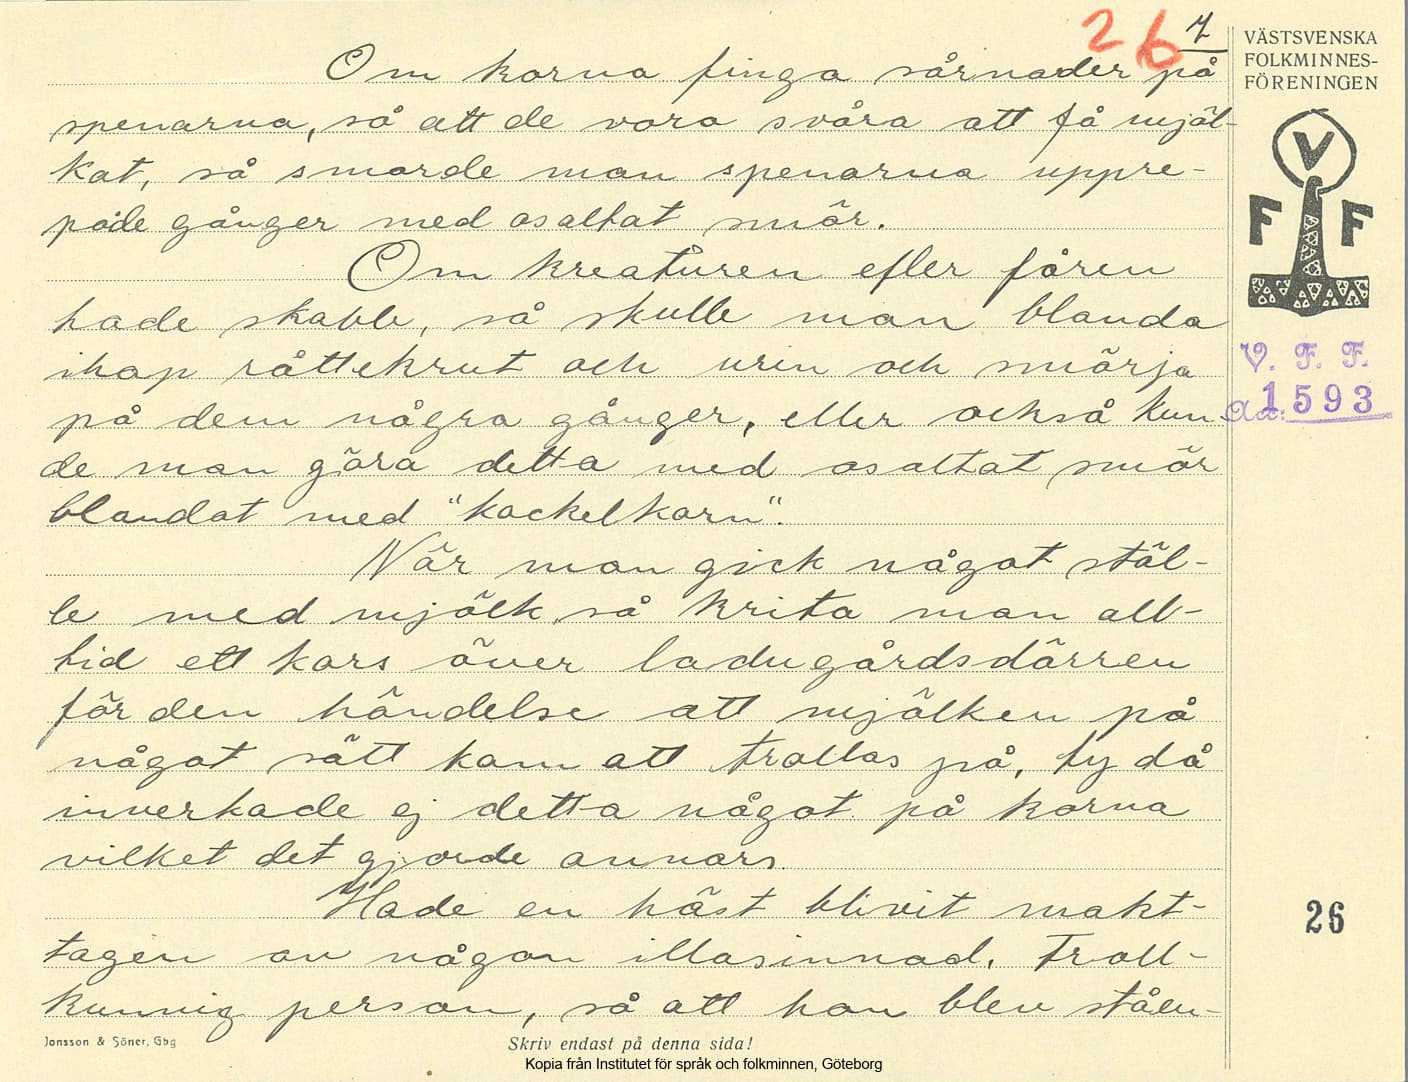 26 7
Om korna finga sårnader på
spenarna, så att de voro svåra att få mjöl-
kat, så smorde man spenarna uppre-
pade gånger med osaltat smör.
Om kreaturen eller fåren
hade skabb, så skulle man blanda
ihop råttekrut och urin och smörja
på dem några gånger, eller också kun-
de man göra detta med osaltat smör
blandat med "kockelkorn".
När man gick något stäl-
le med mjölk, så krita man all-
tid ett kors över ladugårdsdörren
för den händelse att mjölken på
något sätt kom att trollas på, ty då
inverkade ej detta något på korna
vilket det gjorde annars.
Hade en häst blivit makt-
tagen av någon illasinnad, troll-
kunnig person, så att han blev ståen-
Jonsson & Söner, Gbg
Skriv endast på denna sida!
Kopia från Institutet för språk och folkminnen, Göteborg
VÄSTSVENSKA
FOLKMINNES-
FÖRENINGEN
V
F F
V. F. F.
1593
26